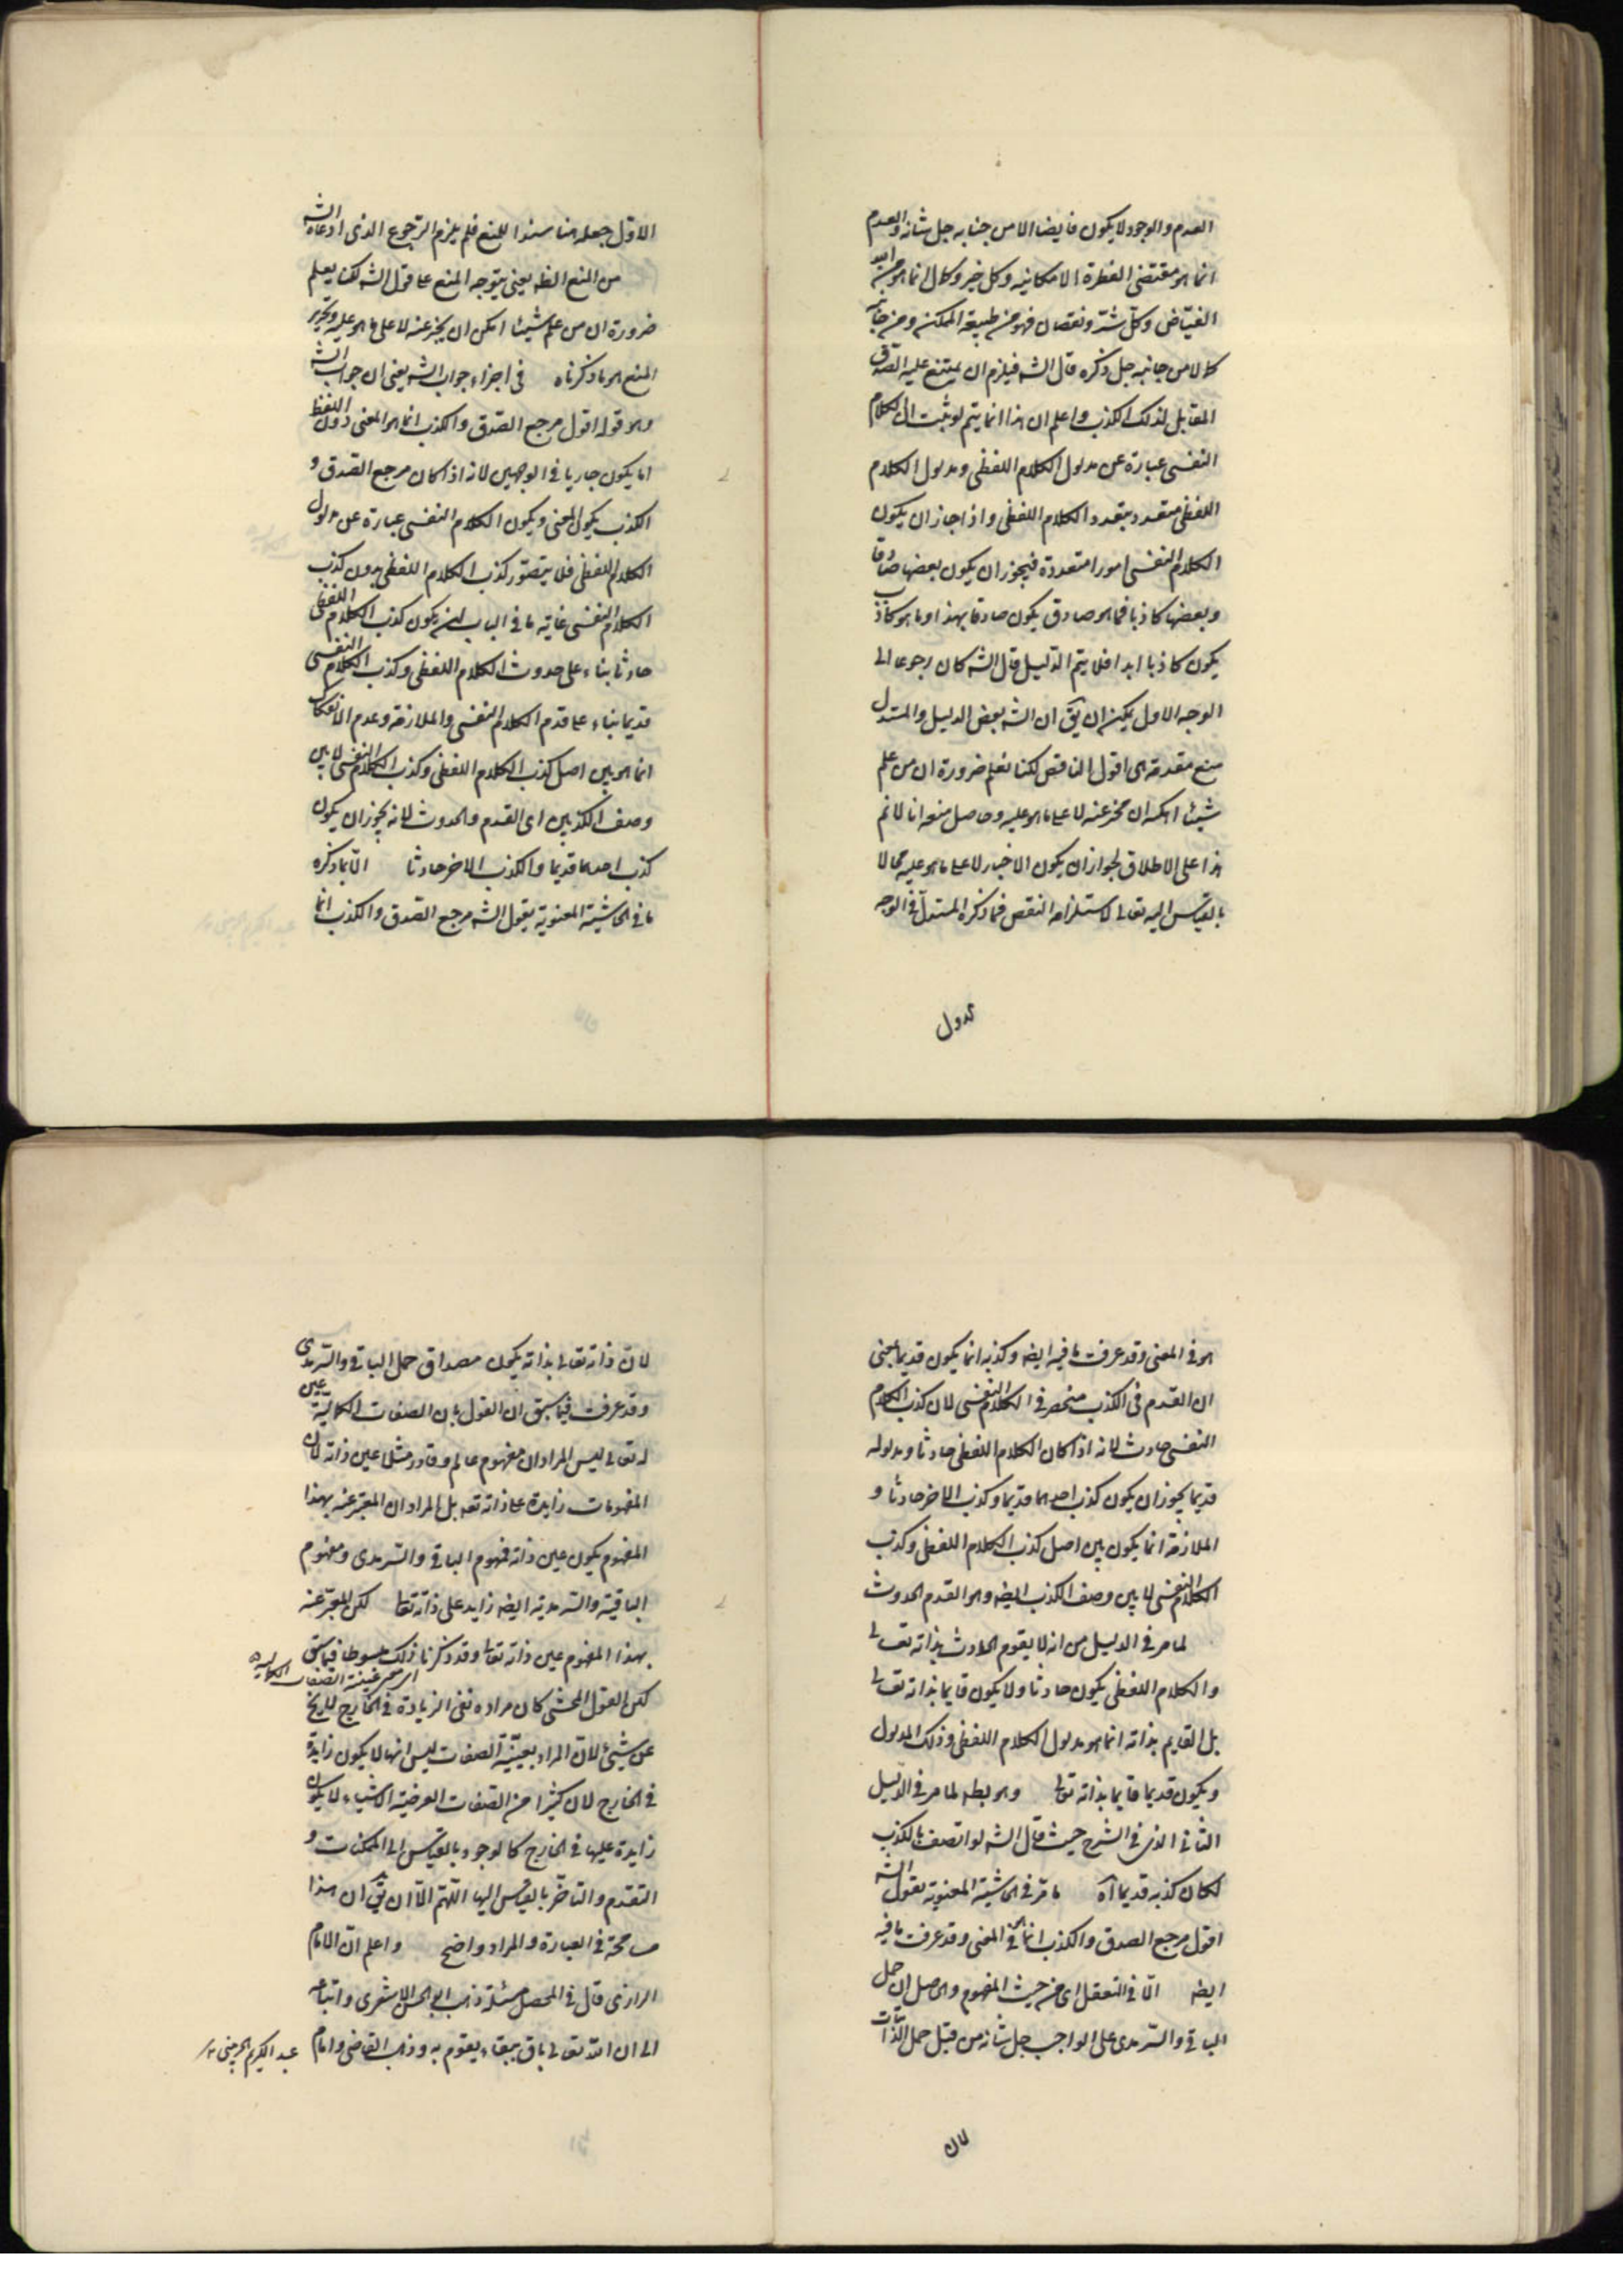 العدم والوجود لا يكون فايضا الا من جنابه جل شانه والعدم
انما هو مقتضى الفطرة الامكانيه وكل خير وكمال انما هو من
الفياض وكل شر ونقصان فهو من طبيعة الممكن ومن جانبه
كلا لا من جانبه جل ذكره قال الشه فيلزم ان يمتنع عليه الصدق
المقابل لذلك الكذب واعلم ان هذا انما يتم لو ثبت ان الكلام
النفسى عبارة عن مدلول الكلام اللفظى ومدلول الكلام
اللفظى متعدد بتعدد الكلام اللفظى واذا جاز ان يكون
الكلام النفسى امورا متعددة فيجوز ان يكون بعضها صادقا
وبعضها كاذبا فما هو صادق يكون صادقا بهذا وما هو كاذب
يكون كاذبا ابدا فلا يتم الدليل قال الشه كان رجوعا الى
الوجه الاول يمكن ان يق ان الشه بعض الدليل والمستدل
منع مقدمة هى اقول الناقص لكنا نعلم ضرورة ان من علم
شيئا امكنه ان يخبر عنه لا على ما هو عليه وحاصل منعه انا لا نم
هذا على الاطلاق لجواز ان يكون الاخبار لا على ما هو عليه محالا
بالقياس اليه تعالى لاستلزامه النقص فما ذكره المستدل فى الوجه
الاول جعله هنا سندا للمنع فلم يلزم الرجوع الذى ادعاه الشه
من المنع الظه يعنى يتوجه المنع على قول الشه لكنا نعلم
ضرورة ان من علم شيئا امكن ان يخبر عنه لا على ما هو عليه وتحرير
المنع هو ما ذكرناه فى اجزاء جواب الشه يعنى ان جواب الشه
وهو قوله اقول مرجع الصدق والكذب انما هو المعنى دون اللفظ
اما يكون جاريا فى الوجهين لانه اذا كان مرجع الصدق و
الكذب يكون المعنى ويكون الكلام النفسى عبارة عن مدلول
الكلام اللفظى فلا يتصور كذب الكلام اللفظى بدون كذب
الكلام النفسى غاية ما فى الباب انه يكون كذب الكلام اللفظى
حادثا بناء على حدوث الكلام اللفظى وكذب الكلام النفسى
قديما بناء على قدم الكلام النفسى والملازمة وعدم الانفكاك
انما هو بين اصل كذب الكلام اللفظى وكذب الكلام النفسى لا بين
وصف الكذبين اى القدم والحدوث لانه يجوز ان يكون
كذب احدهما قديما والكذب الاخر حادثا الا بما ذكره
ما فى الحاشية المعنونة بقول الشه مرجع الصدق والكذب انما
هو فى المعنى وقد عرفت ما فيه ايضه وكذبه انما يكون قديما يعنى
ان القدم فى الكذب منحصر فى الكلام النفسى لان كذب الكلام
النفسى حادث لانه اذا كان الكلام اللفظى حادثا ومدلوله
قديما يجوز ان يكون كذب احدهما قديما وكذب الاخر حادثا و
الملازمة انما يكون بين اصل كذب الكلام اللفظى وكذب
الكلام النفسى لا بين وصف الكذب ايضه وهو القدم الحدوث
لما مر فى الدليل من انه لا يقوم الحادث بذاته تعالى
والكلام اللفظى يكون حادثا ولا يكون قايما بذاته تعالى
بل القايم بذاته انما هو مدلول الكلام اللفظى وذلك المدلول
ويكون قديما قايما بذاته تعالى وهو بطه لما مر فى الدليل
الثانى الذى فى الشرح حيث قال الشه لو اتصف بالكذب
لكان كذبه قديما اه ما مر فى الحاشية المعنونة بقول الشه
اقول مرجع الصدق والكذب انما فى المعنى وقد عرفت ما فيه
ايضه الا فى التعقل اى من حيث المفهوم والحاصل ان حمل
الباقى والسرمدى على الواجب جل شانه من قبيل حمل الذاتيات
لان
لان ذاته تعالى بذاته يكون مصداق حمل الباقى والسرمدى
وقد عرفت فيما سبق ان القول بان الصفات الكمالية عين
له تعالى ليس المراد ان مفهوم عالم وقادر مثلا عين ذاته لان
المفهومات زايدة على ذاته تعه بل المراد ان المعبر عنه بهذا
المفهوم يكون عين ذاته فمفهوم الباقى والسرمدى ومفهوم
الباقية والسرمدية ايضه زايد على ذاته تعالى لكن المعبر عنه
بهذا المفهوم عين ذاته تعالى وقد ذكرنا ذلك مبسوطا فيما سبق
لكن القول المحشى كان مراده نفى الزيادة فى الخارج لا يخ
عن شيئ لان المراد بعينية الصفات ليس انها لا يكون زايدة
فى الخارج لان كثيرا من الصفات العرضية الاشياء لا يكون
زايدة عليها فى الخارج كالوجود بالقياس الى الممكنات و
التقدم والتاخر بالقياس اليها اللهم الا ان يق ان هذا
مسامحة فى العبارة والمراد واضح واعلم ان الامام
الرازى قال فى المحصل مسئلة ذهب ابو الحسن الاشعرى واتباعه
الى ان الله تعالى باق ببقاء يقوم به وذهب القاضى وامام